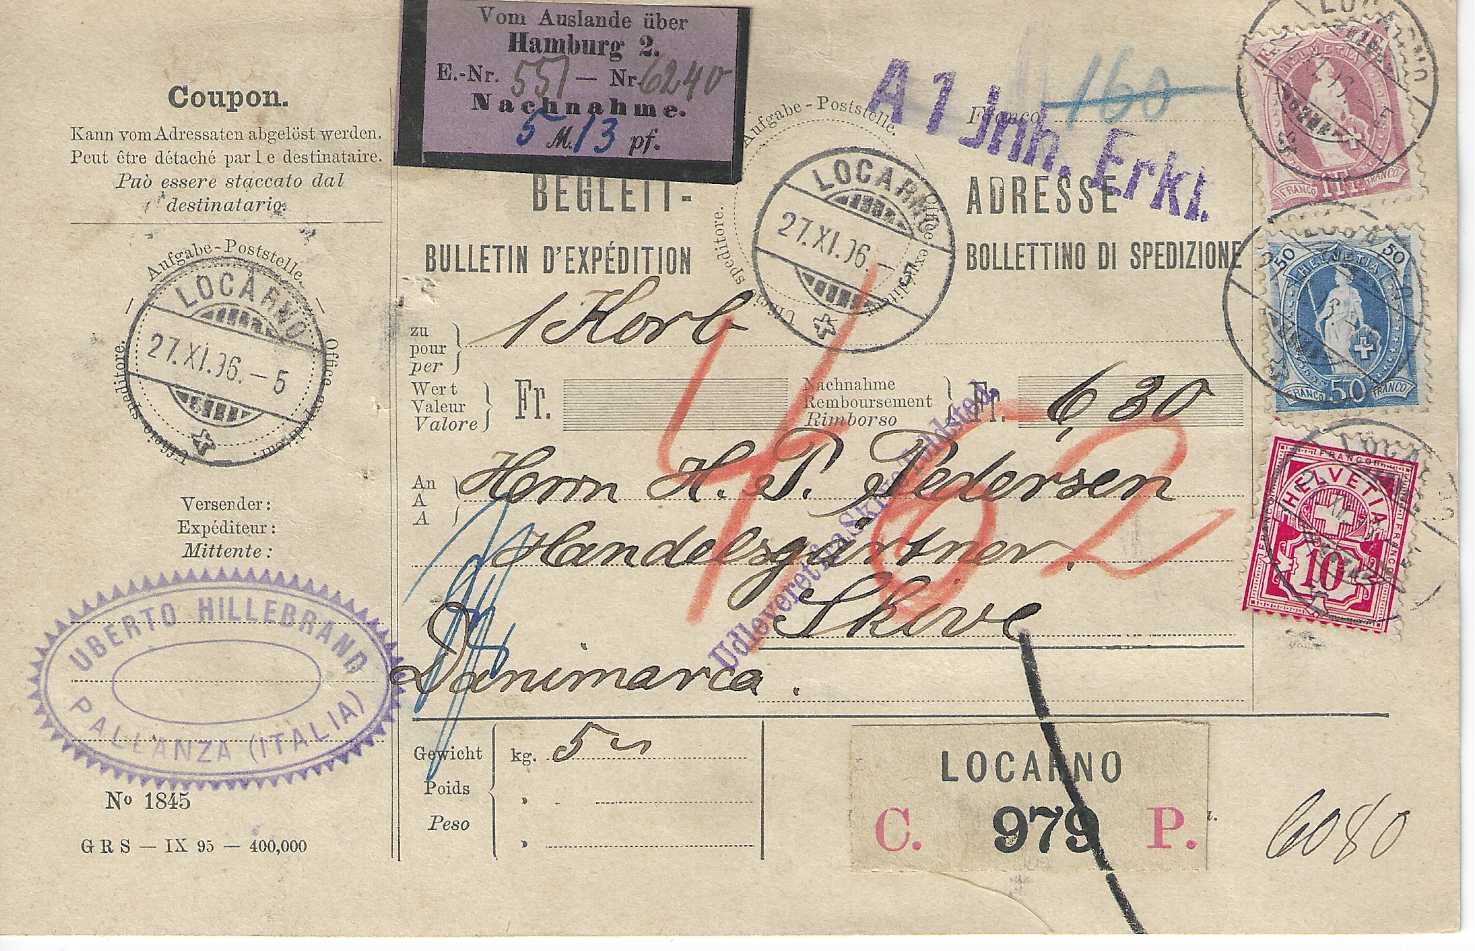 Vom Auslande über
Hamburg 2.
E.-Nr. 551 – Nr 6240
Nachnahme.
5 M. 13 pf.
Coupon.
Kann vom Adressaten abgelöst werden.
Peut être détaché par le destinataire.
Può essere staccato dal
destinatario.
Aufgabe-Poststelle.
Office expéditeur.
Ufficio speditore.
LOCARNO
27.XI.96.-5
Versender:
Expéditeur:
Mittente:
UBERTO HILLEBRAND
PALLANZA (ITALIA)
No 1845
GRS — IX 95 — 400,000
A 1 Jnh. Erkl.
Franco
160
BEGLEIT-ADRESSE
BULLETIN D'EXPÉDITION
BOLLETTINO DI SPEDIZIONE
Aufgabe-Poststelle.
Office expéditeur.
Uffici speditore.
LOCARNO
27.XI.96.-5
zu
pour
per
1 Korb
Wert
Valeur
Valore
Fr.
Nachnahme
Remboursement
Rimborso
Fr. 6,30
An
A
A
Herrn H. P. Pedersen
Handelsgärtner.
Skive
Danimarca.
462
Udleveret fra Skive
Gewicht
Poids
Peso
kg. 5
LOCARNO
C. 979 P.
6080
LOCARNO
HELVETIA
FRANCO 1 Fr. FRANCO
LOCARNO
50 50
HELVETIA
FRANCO 50 FRANCO
LOCARNO
FRANCO
HELVETIA
10